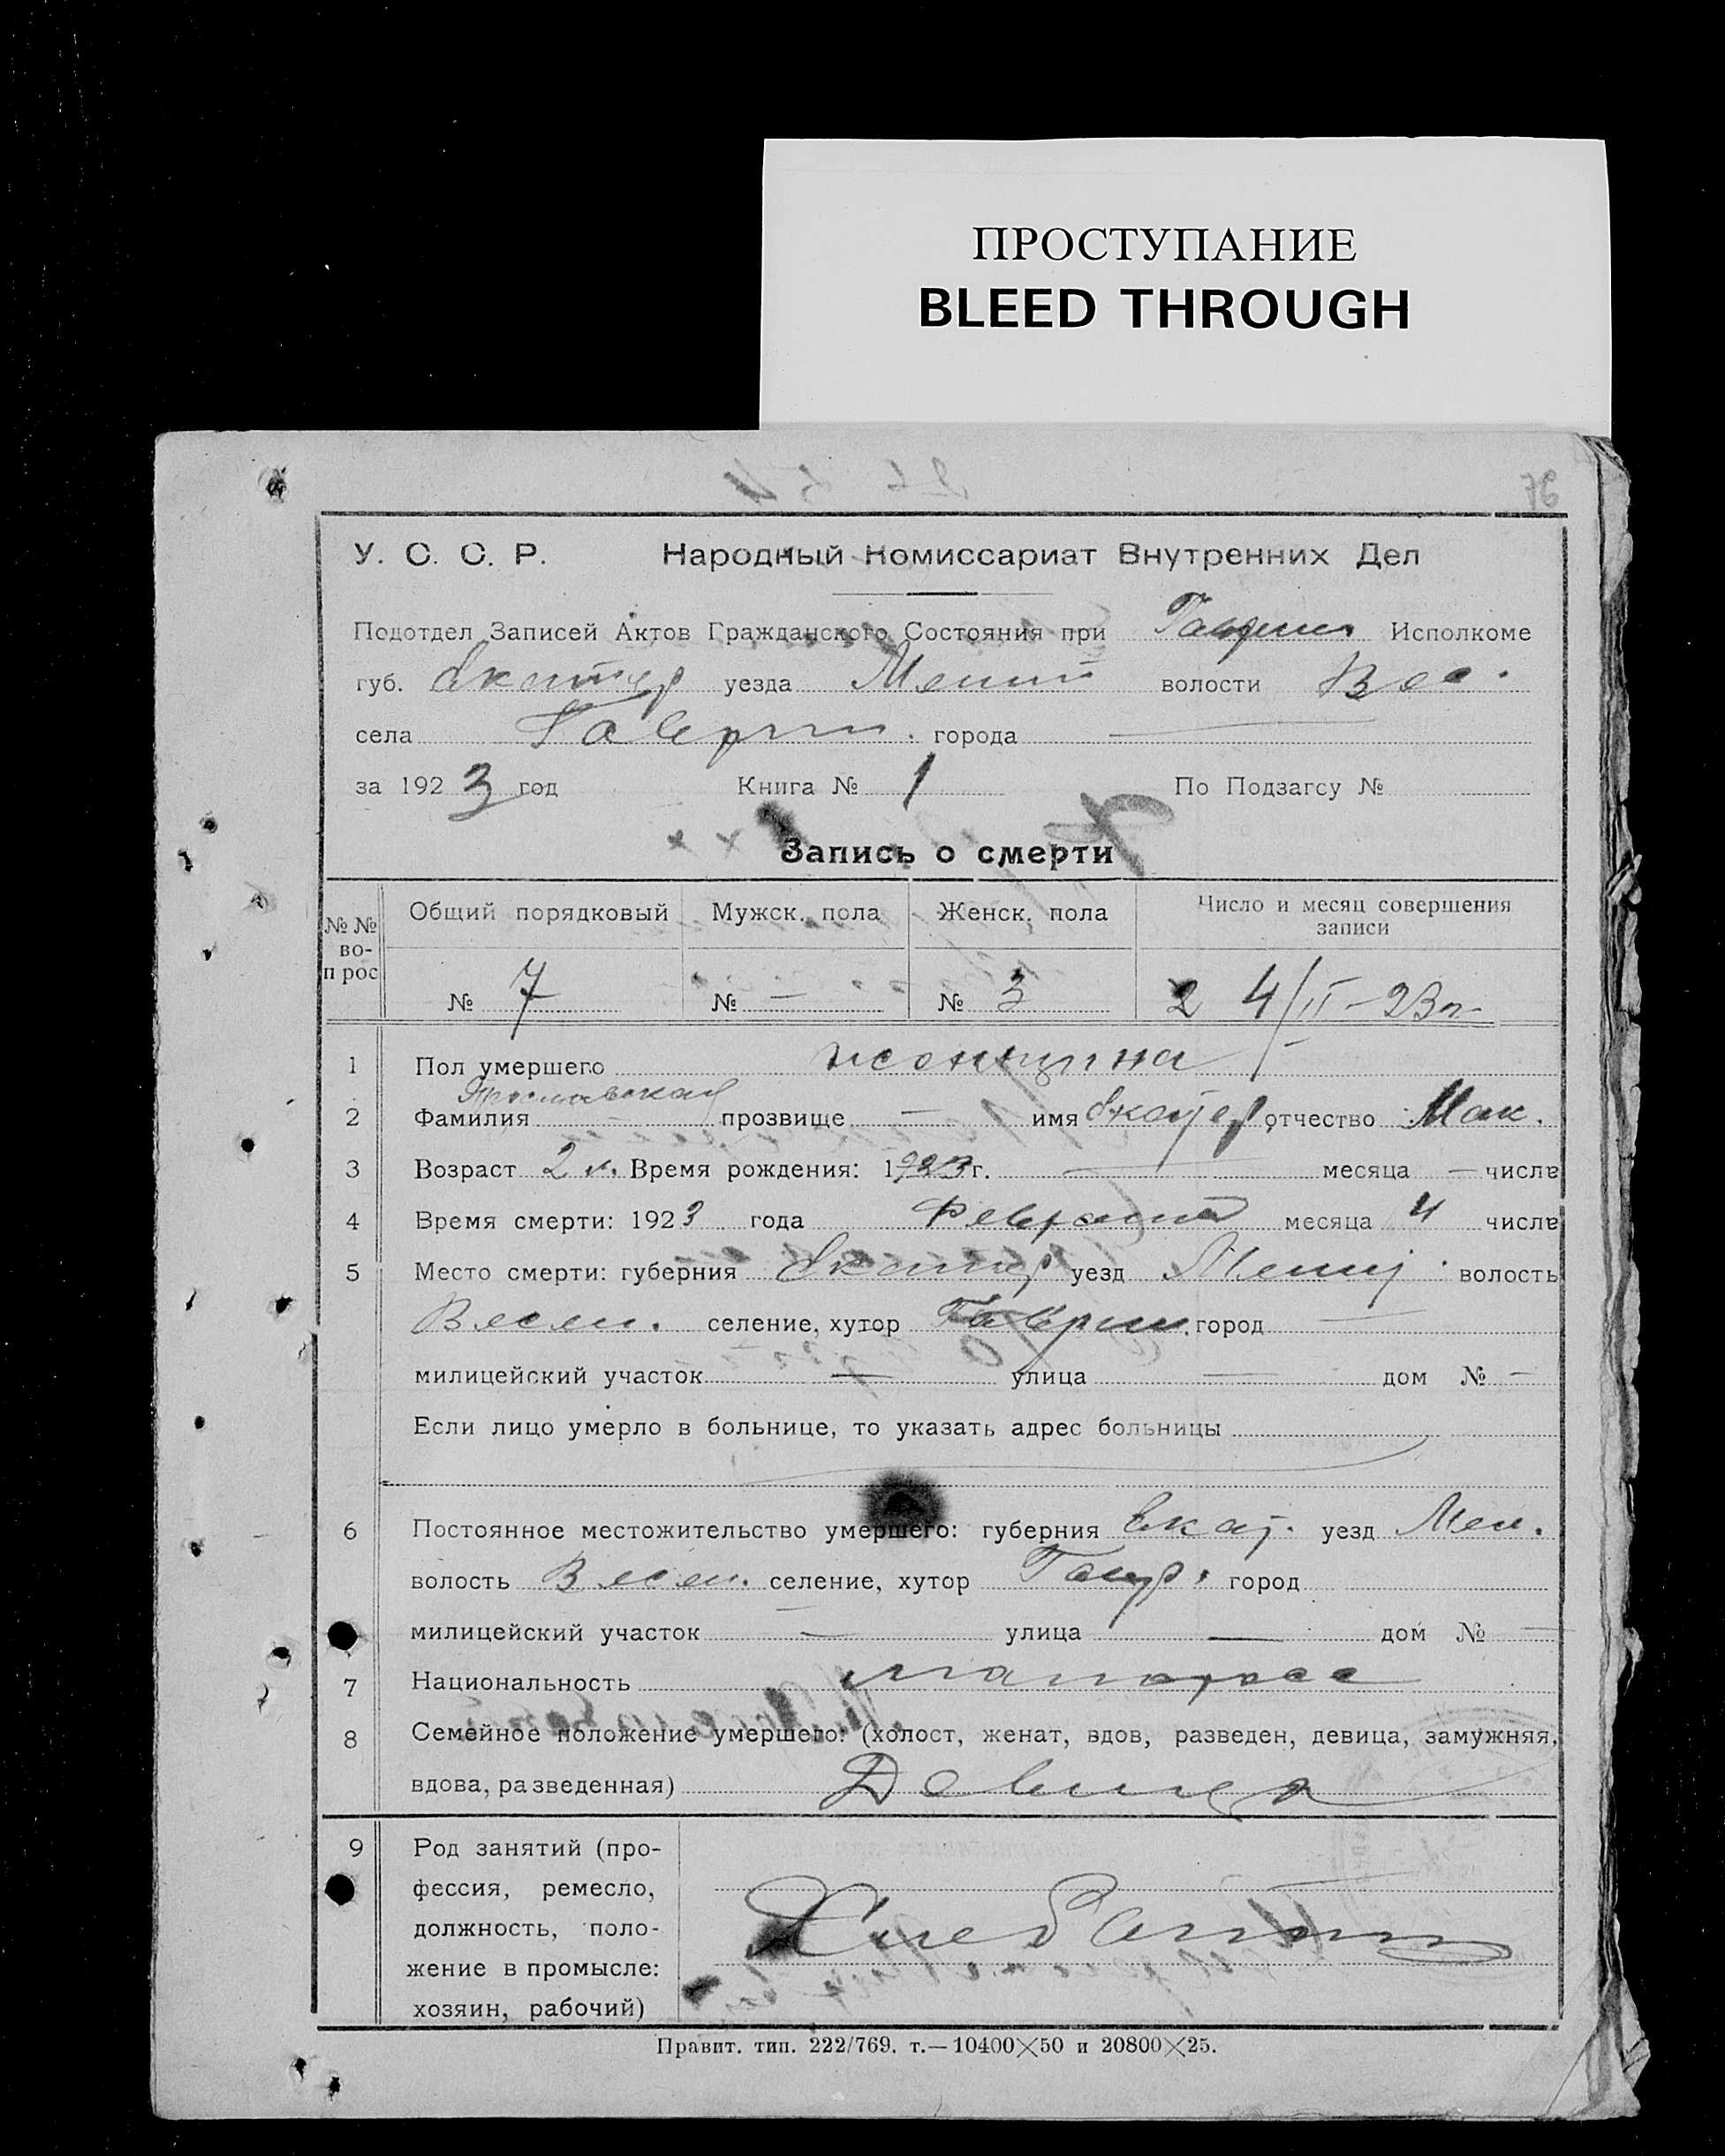 ПРОСТУПАНИЕ
BLEED THROUGH
76
У. С. С. Р. Народный Комиссариат Внутренних Дел
Подотдел Записей Актов Гражданского Состояния при Исполкоме
губ. Екатер уезда волости Вес.
села города —
за 1923 год Книга № 1 По Подзагсу №
Запись о смерти
№ № во- прос Общий порядковый Мужск. пола Женск. пола Число и месяц совершения записи
№ 7 № — № 3 4/II – 23 г.
1 Пол умершего женщина
2 Фамилия прозвище — имя Екатер отчество Мак.
3 Возраст 2 Время рождения: 1923 г. — месяца — числа
4 Время смерти: 1923 года Февраля месяца 4 числа
5 Место смерти: губерния Екатер уезд волость
Весел. селение, хутор Гаврил. город —
милицейский участок — улица — дом № —
Если лицо умерло в больнице, то указать адрес больницы
6 Постоянное местожительство умершего: губерния Екат. уезд Мел.
волость Весел. селение, хутор Гавр. город
милицейский участок — улица — дом № —
7 Национальность малоросс
8 Семейное положение умершего: (холост, женат, вдов, разведен, девица, замужняя,
вдова, разведенная) Девица
9 Род занятий (про-
фессия, ремесло,
должность, поло-
жение в промысле:
хозяин, рабочий)
Правит. тип. 222/769. т.—10400×50 и 20800×25.